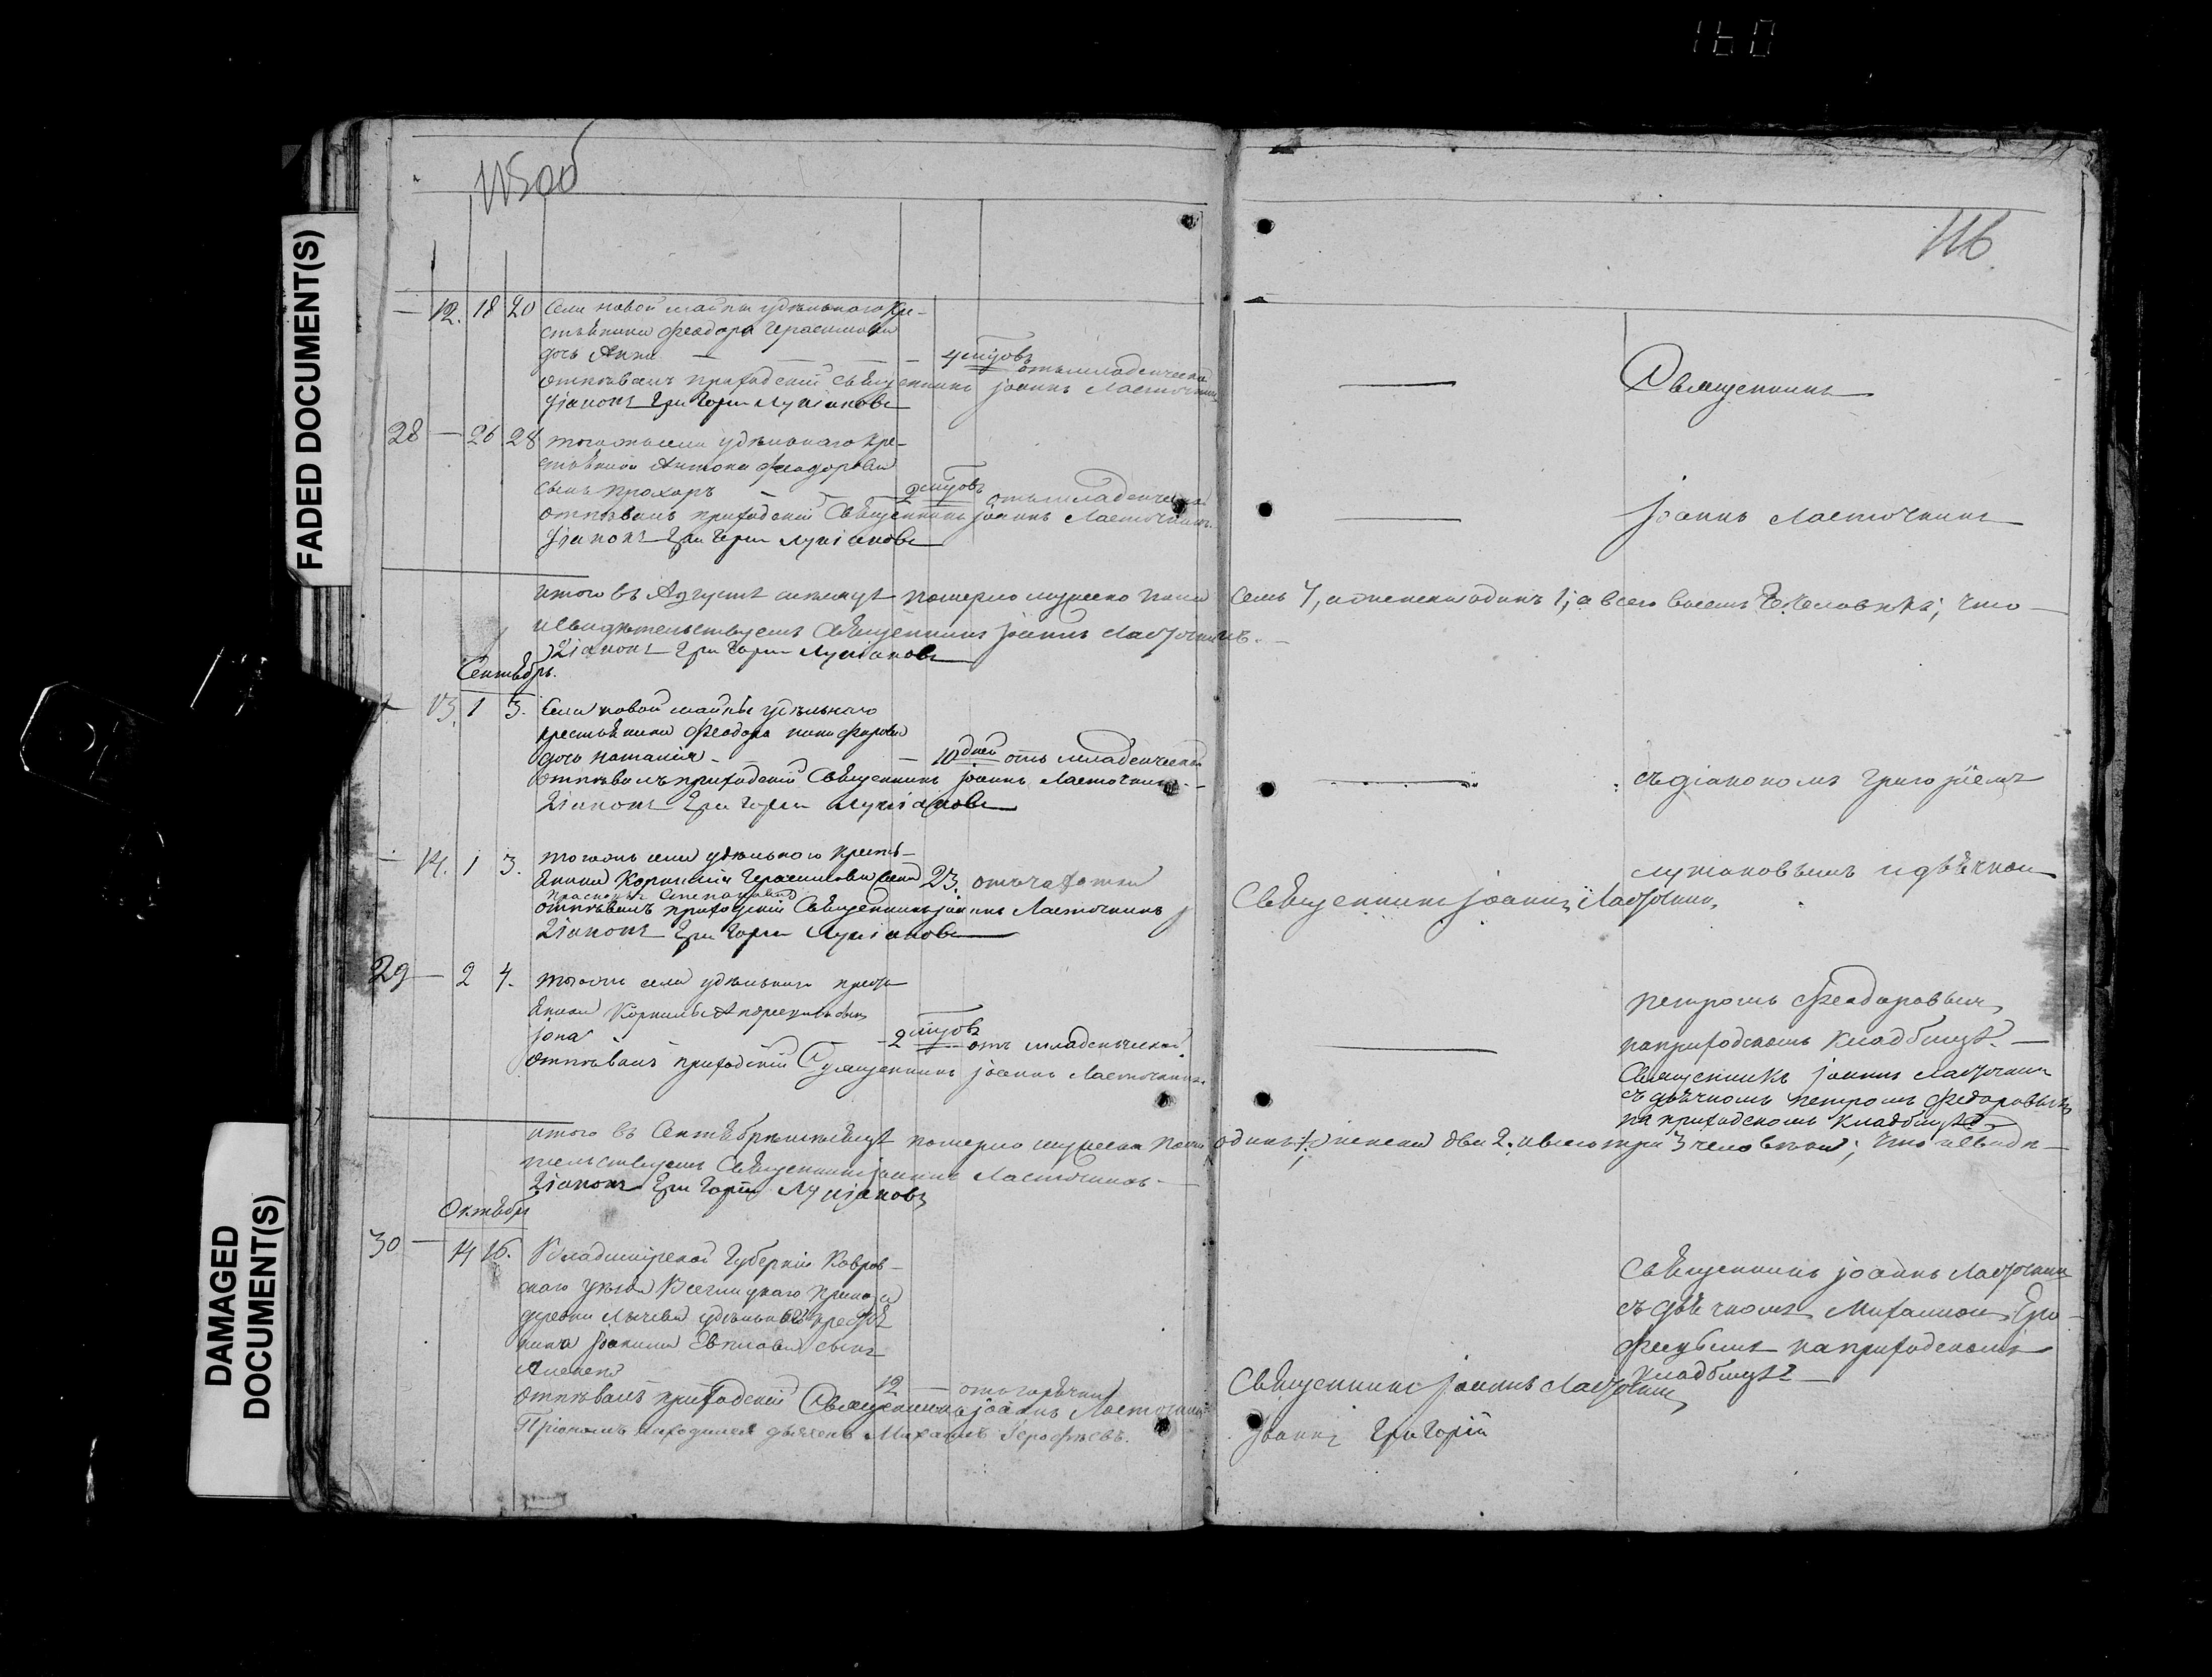 160
115об
116
FADED DOCUMENT(S)
DAMAGED DOCUMENT(S)
— 12. 18 20 Села новой майны удѣльнаго кре-
стьянина Феодора Герасимова
дочь Анна — 4 мцовъ отъ младенческой
отпѣвалъ приходскій священникъ Іоаннъ Ласточкинъ
Діаконъ Григорій Лукіановъ
Священникъ
28 — 26 28 тогожъ села удѣльнаго кре-
стьянина Антона Феодорова
сынъ Прохоръ — 2 мцовъ отъ младенческой
отпѣвалъ приходскій Священникъ Іоаннъ Ласточкинъ.
Діаконъ Григорій Лукіановъ
Іоаннъ Ласточкинъ
итого въ Августѣ мѣсяцѣ померло мужеска пола семь 7, а женска одинъ 1; а всего восемь 8. человѣкъ; что
и свидѣтельствуемъ Священникъ Іоаннъ Ласточкинъ.
Діаконъ Григорій Лукіановъ
Сентябрь.
— 13. 1 3. Села новой майны удѣльнаго
крестьянина Феодора Никифорова
дочь Наталія — 10 дней отъ младенческой
отпѣвалъ приходскій Священникъ Іоаннъ Ласточкинъ
Діаконъ Григорій Лукіановъ
съ діакономъ Григоріемъ
— 14. 1 3. тогожъ села удѣльнаго кресть-
янина Корнилія Герасимова жена 23. отъ чахотки
Прасковья Степановна
отпѣвалъ приходскій Священникъ Іоаннъ Ласточкинъ
Діаконъ Григорій Лукіановъ
Лукіановымъ и дьячкомъ
Священникъ Іоаннъ Ласточкинъ
29 — 2 4. тогожъ села удѣльнаго кресть
янина Корнила сынъ
Іона — 2 мцовъ отъ младенческой
отпѣвалъ приходскій Священникъ Іоаннъ Ласточкинъ.
Петромъ Феодоровымъ
на приходскомъ кладбищѣ. —
Священникъ Іоаннъ Ласточкинъ
съ дьячкомъ Петромъ Федоровымъ
на приходскомъ кладбищѣ
итого въ Сентябрѣ мѣсяцѣ померло мужеска пола одинъ 1, женска два 2. а всего три 3 человѣка; что и свидѣ-
тельствуемъ Священникъ Іоаннъ Ласточкинъ. —
Діаконъ Григорій Лукіановъ
Октябрь
30 — 14 16. Владимірской Губерніи Ковров-
скаго уѣзда прика
деревни удѣльнаго крестья
нина сынъ
Алексей 12 — отъ горячки
отпѣвалъ приходскій Священникъ Іоаннъ Ласточкинъ
При томъ находился дьячекъ Михаилъ Ерофѣевъ.
Священникъ Іоаннъ Ласточкинъ
съ дьячкомъ Михаиломъ Еро-
феевымъ на приходскомъ
кладбищѣ —
Священникъ Іоаннъ Ласточкинъ
Григорій